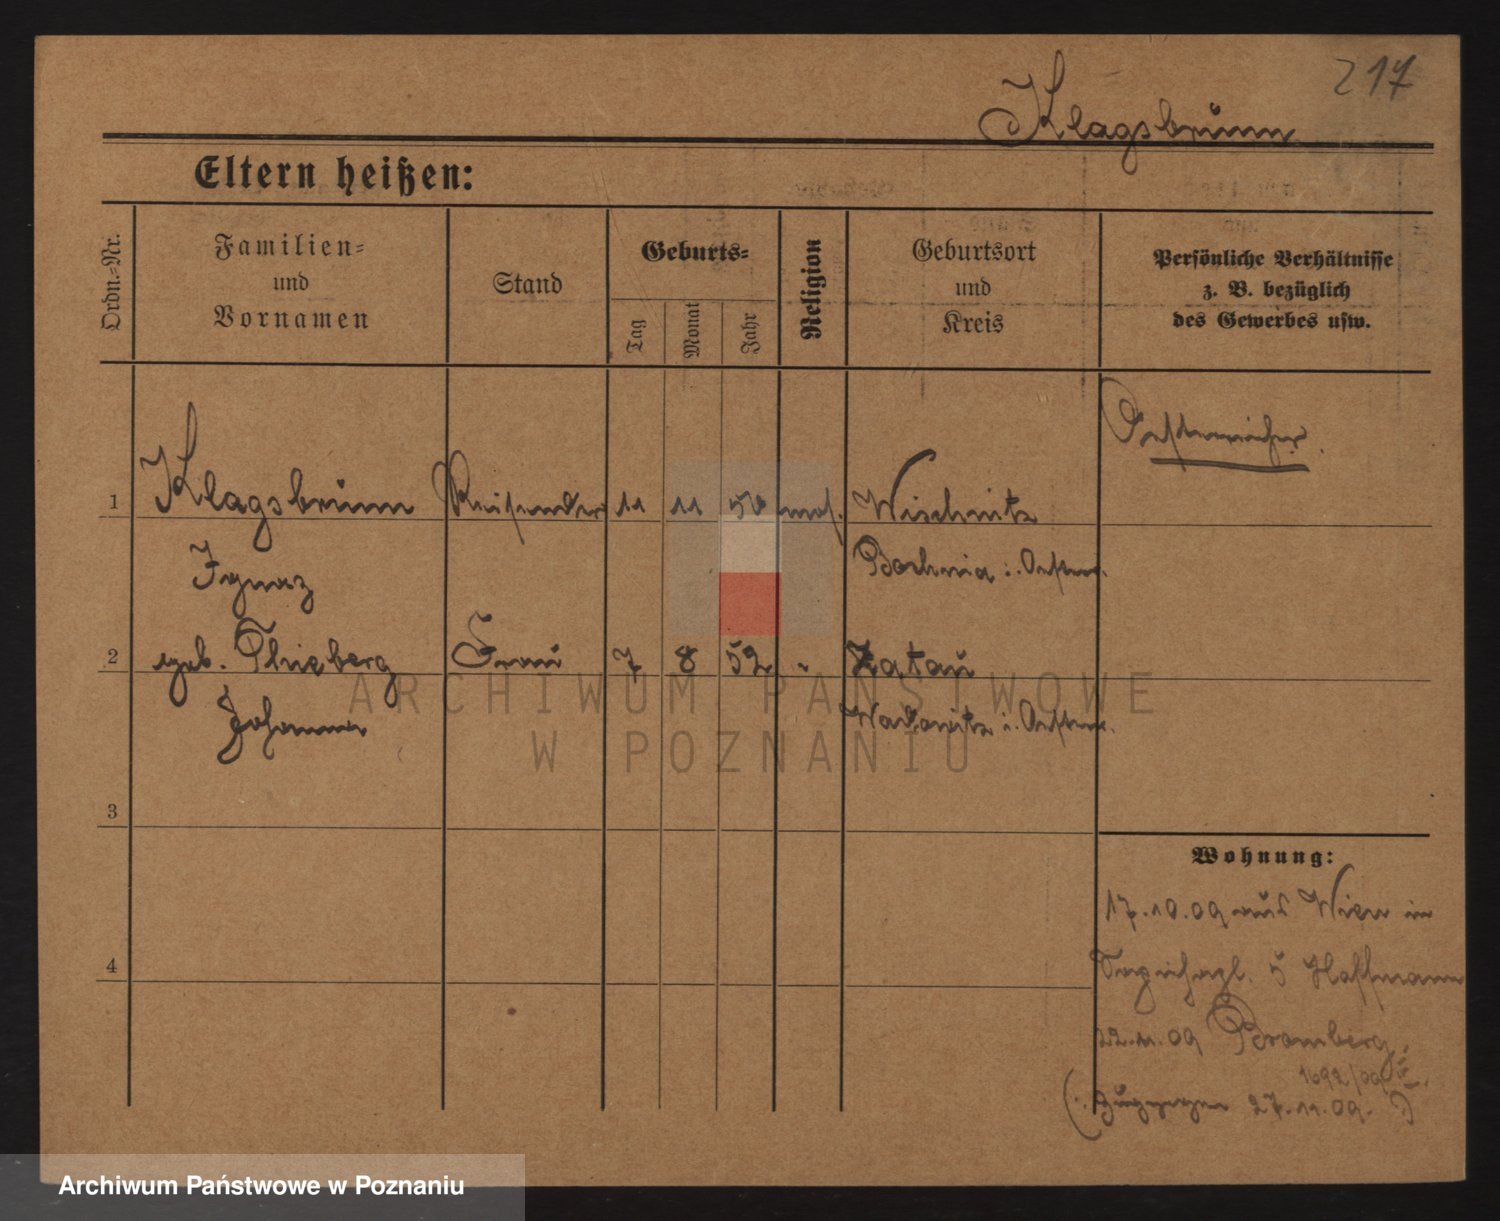 217
Klagsbrunn
Eltern heißen:
Ordn.-Nr.
Familien-
und
Vornamen
Stand
Geburts-
Tag
Monat
Jahr
Religion
Geburtsort
und
Kreis
Persönliche Verhältnisse
z. B. bezüglich
des Gewerbes usw.
Oesterreicher.
1 Klagsbrunn Reisender 11 11 50 mos. Wischnitz
Ignaz Bochnia i. Oesterr.
2 geb. Thieberg Frau 7 8 52 " Zatau
Johanna Wadowitz i. Oesterr.
3
4
Wohnung:
17.10.09 aus Wien in
5 Hoffmann
22.11.09 Bromberg,
1692/09
27.11.09.
ARCHIWUM PAŃSTWOWE
W POZNANIU
Archiwum Państwowe w Poznaniu